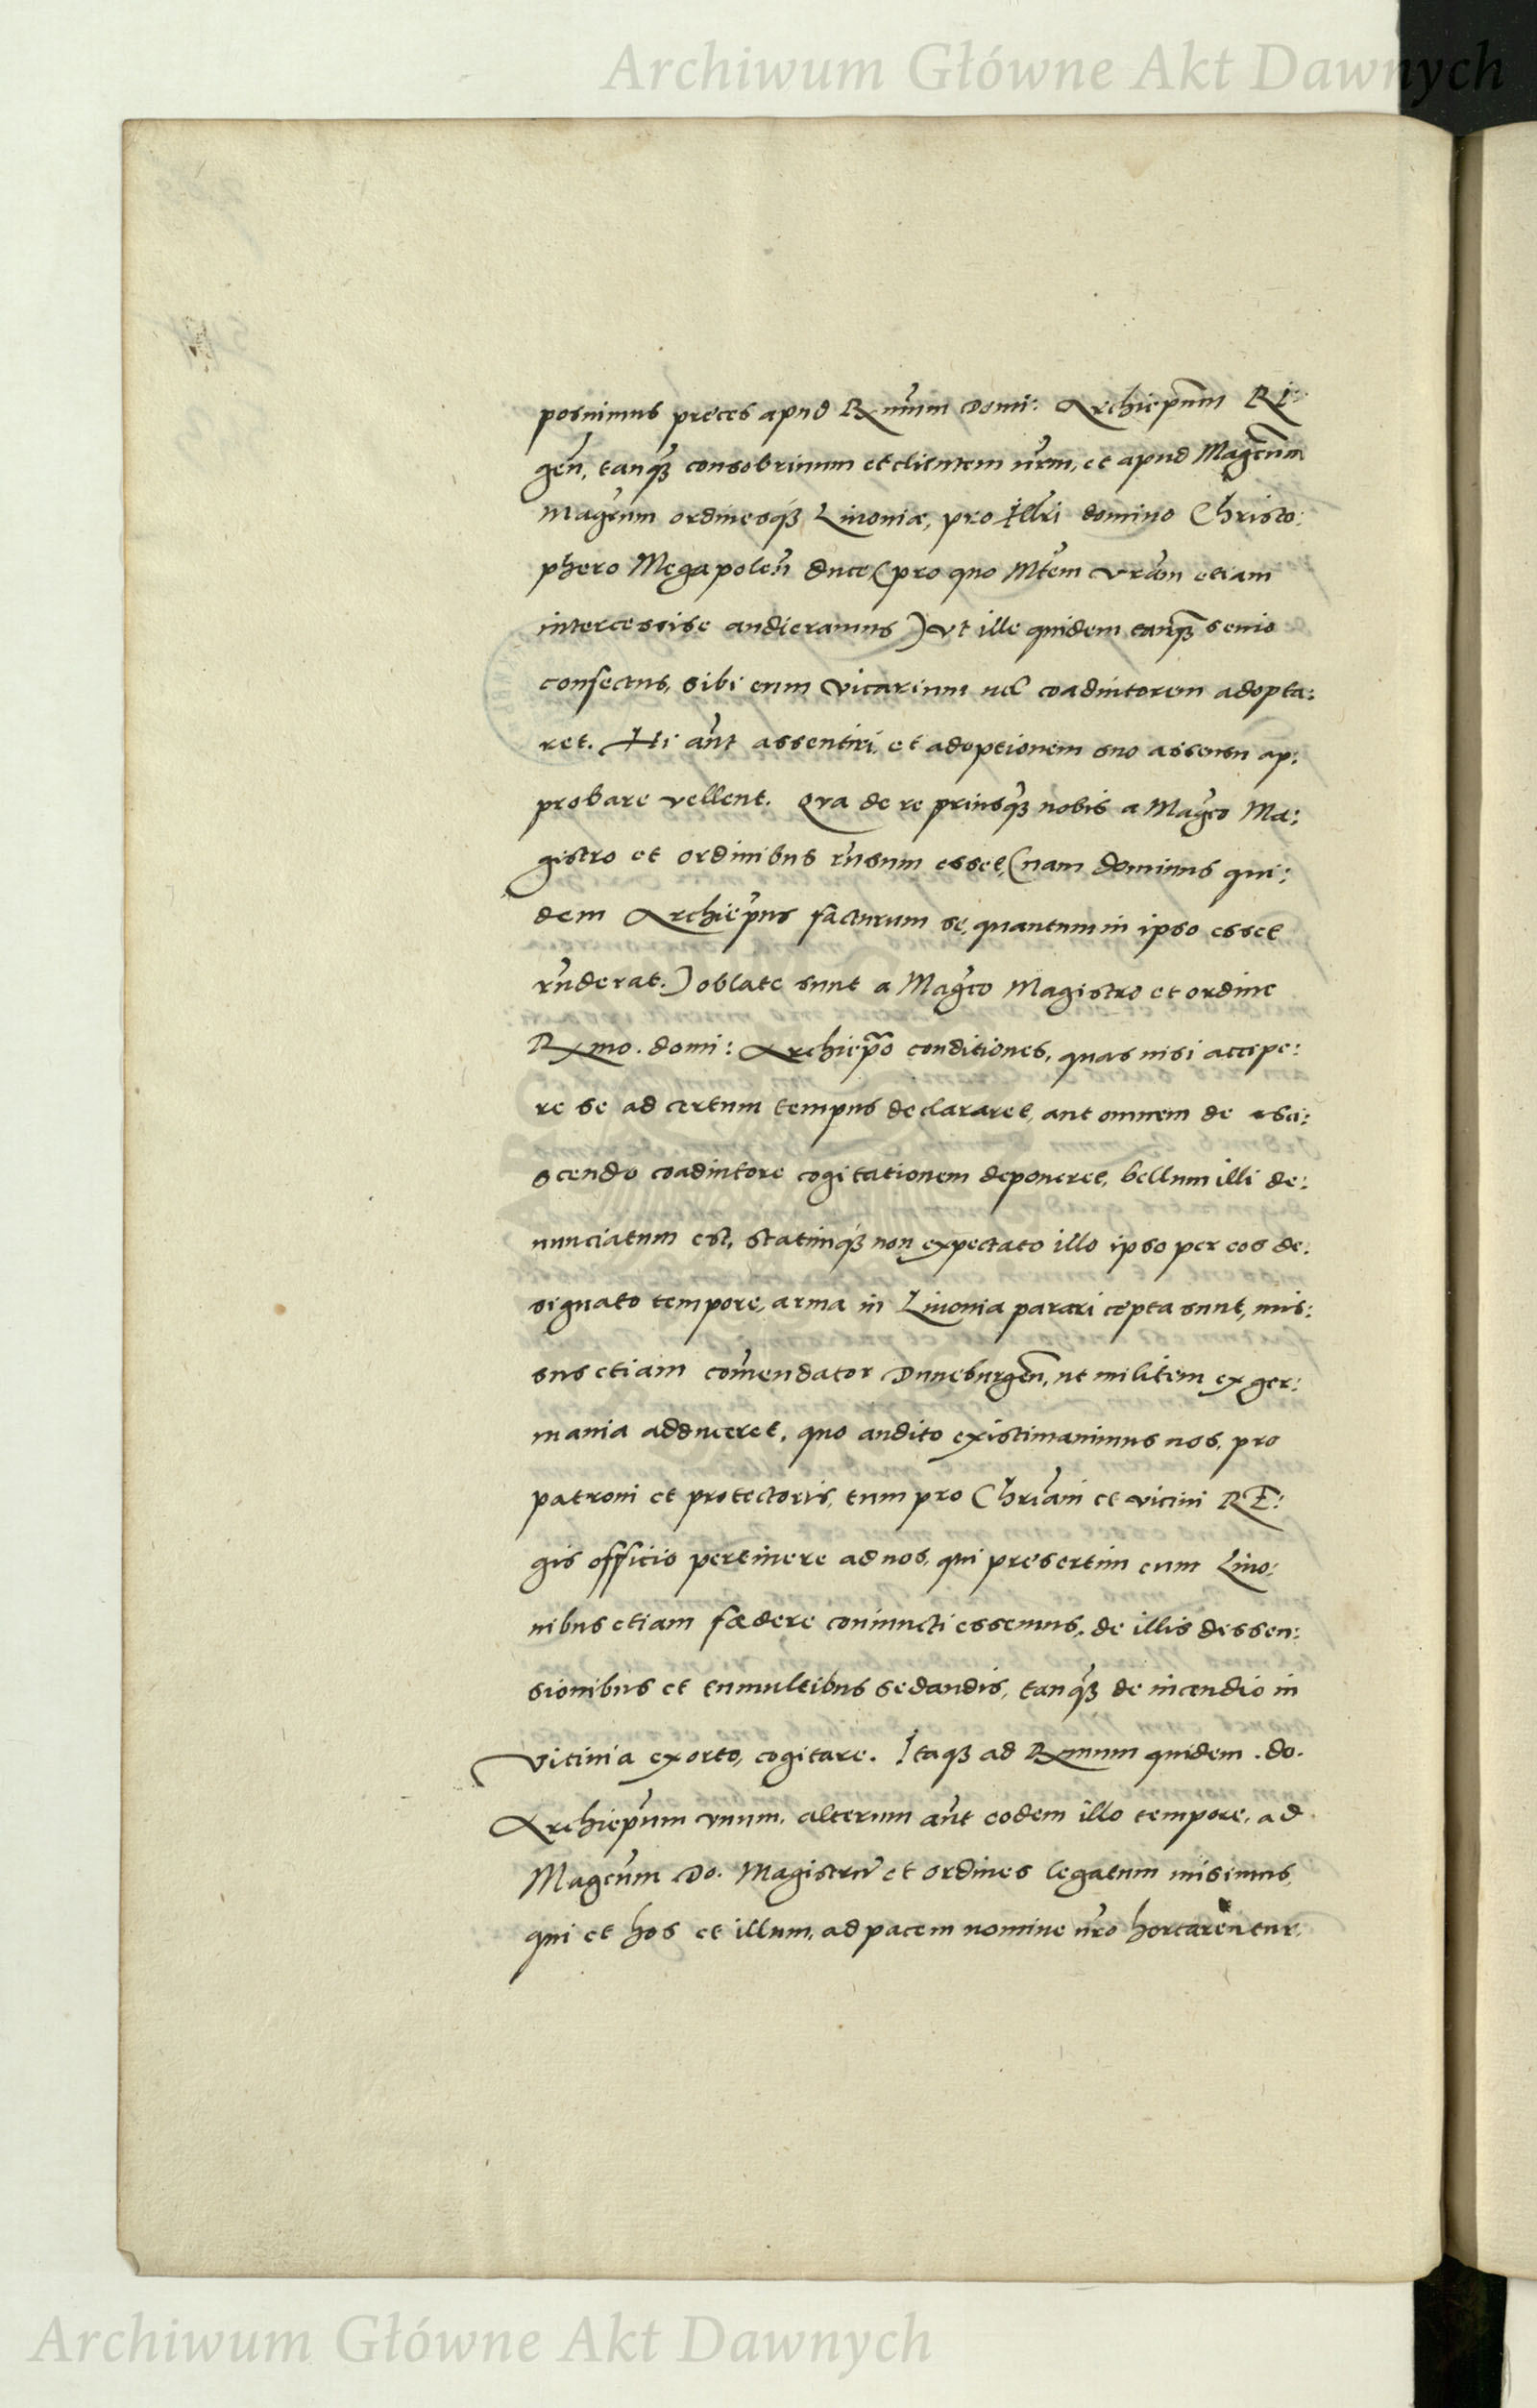 Archiwum Główne Akt Dawnych
posuimus preces apud Rx̃mum Domi: Archiep̃um RI:
geñ, tanq̃ꝫ consobrinum et clientem ñrm, et apud Mag̃cum
Mag̃rum ordinesq́ꝫ Liuoniæ, pro Ill̃ri domino Christo:
phero Megapoleñ duce (pro quo Mt̃em vr̃am etiam
intercessise audieramus) vt ille quidem tanq̃ꝫ senio
confectus, sibi eum vicarium uel coadiutorem adopta:
ret. Hi aũt assentiri et adoptionem suo assensu ap:
probare vellent. Qua de re priusq̃ꝫ nobis a Mag̃co Ma:
gistro et ordinibus r̃nsum esset, (nam dominus qui:
dem Archiep̃us facturum se, quantum in ipso esset
r̃nderat.) oblate sunt a Mag̃co Magistro et ordine
Rxmo. domi: Archiep̃o conditiones, quas nisi accipe:
re se ad certum tempus declararet, aut omnem de asci:
scendo coadiutore cogitationem deponeret, bellum illi de:
nunciatum est, statimq́ꝫ non expectato illo ipso per eos de:
signato tempore, arma in Liuonia parari cepta sunt, mis:
sus etiam com̃endator Duneburgeñ, ut militem ex ger:
mania adduceret, quo audito existimauimus nos, pro
patroni et protectoris, tum pro Chr̃iani et vicini RE:
gis officio pertinere ad nos, qui presertim cum Liuo:
nibus etiam fœdere coniuncti essemus, de illis dessen:
sionibus et tumultibus sedandis, tanq̃ꝫ de incendio in
vicinia exorto, cogitare. Itaqꝫ ad Rxmum quidem .do.
Archiep̃um vnum, alterum aũt eodem illo tempore, ad
Mag̃cum Do. Magistrũ et ordines legatum misimus,
qui et hos et illum, ad pacem nomine ñro hortarentur,
Archiwum Główne Akt Dawnych